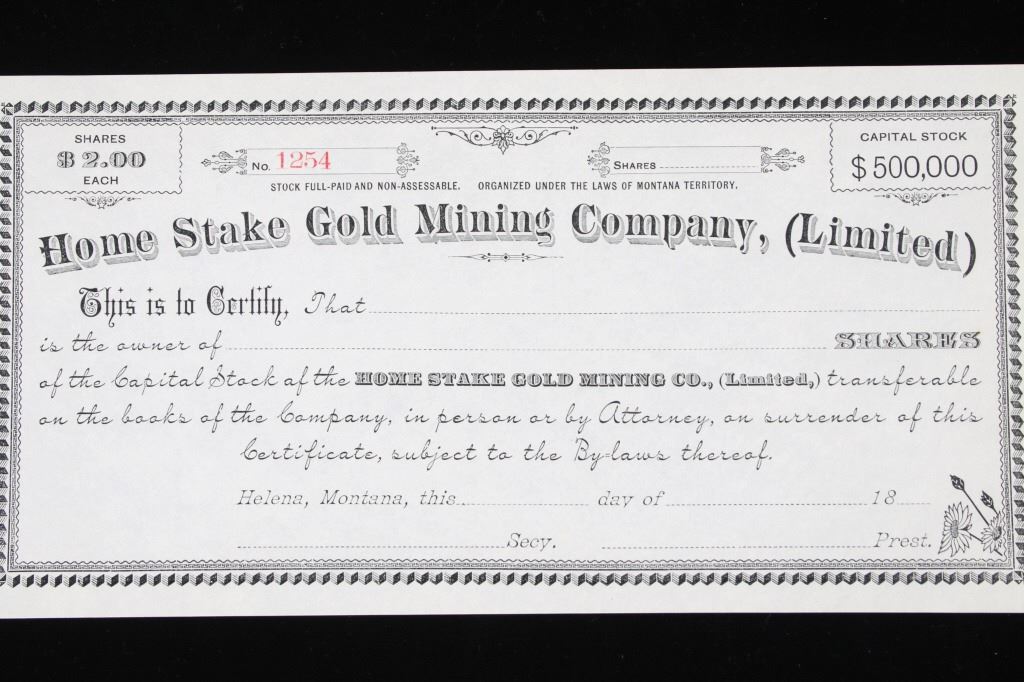 SHARES
$2.00
EACH
No. 1254
SHARES
CAPITAL STOCK
$500,000
STOCK FULL-PAID AND NON-ASSESSABLE. ORGANIZED UNDER THE LAWS OF MONTANA TERRITORY.
Home Stake Gold Mining Company, (Limited)
This is to Certify, That
is the owner of SHARES
of the Capital Stock of the HOME STAKE GOLD MINING CO., (Limited,) transferable
on the books of the Company, in person or by Attorney, on surrender of this
Certificate, subject to the By-laws thereof.
Helena, Montana, this day of 18
Secy. Prest.